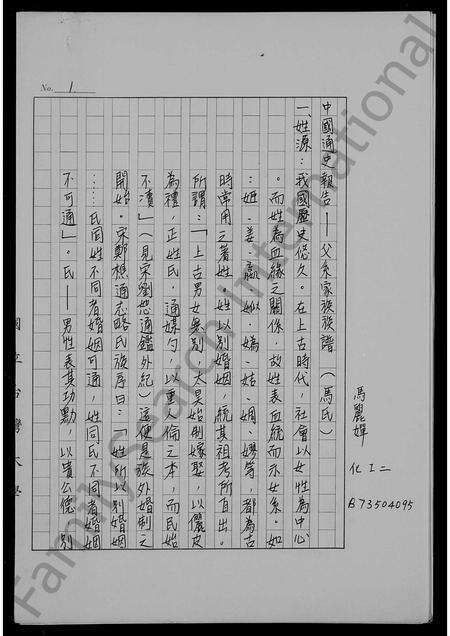 No. 1.
中國通史報告——父系家族族譜（馬氏）
馬麗嬋
化工二
B73504095
一、姓源：我國歷史悠久。在上古時代，社會以女性為中心
。而姓為血緣之關係，故姓表血統而示女系。如
：姬、姜、嬴、姒、媯、姞、妘、嫪等，都為古
時常用之著姓。姓以別婚姻，統其祖考所自出。
所謂：「上古男女無別，太昊始制嫁娶，以儷皮
為禮，正姓氏，通媒勺，以重人倫之本，而民始
不瀆」（見宋劉恕通鑑外紀）這便是族外婚制之
開始。宋鄭樵通志略氏族序曰：「姓所以別婚姻
……氏同姓不同者婚姻可通，姓同氏不同者婚姻
不可通」。氏——男性表其功勳，以貴公德，別
國立台灣大學
FamilySearch International